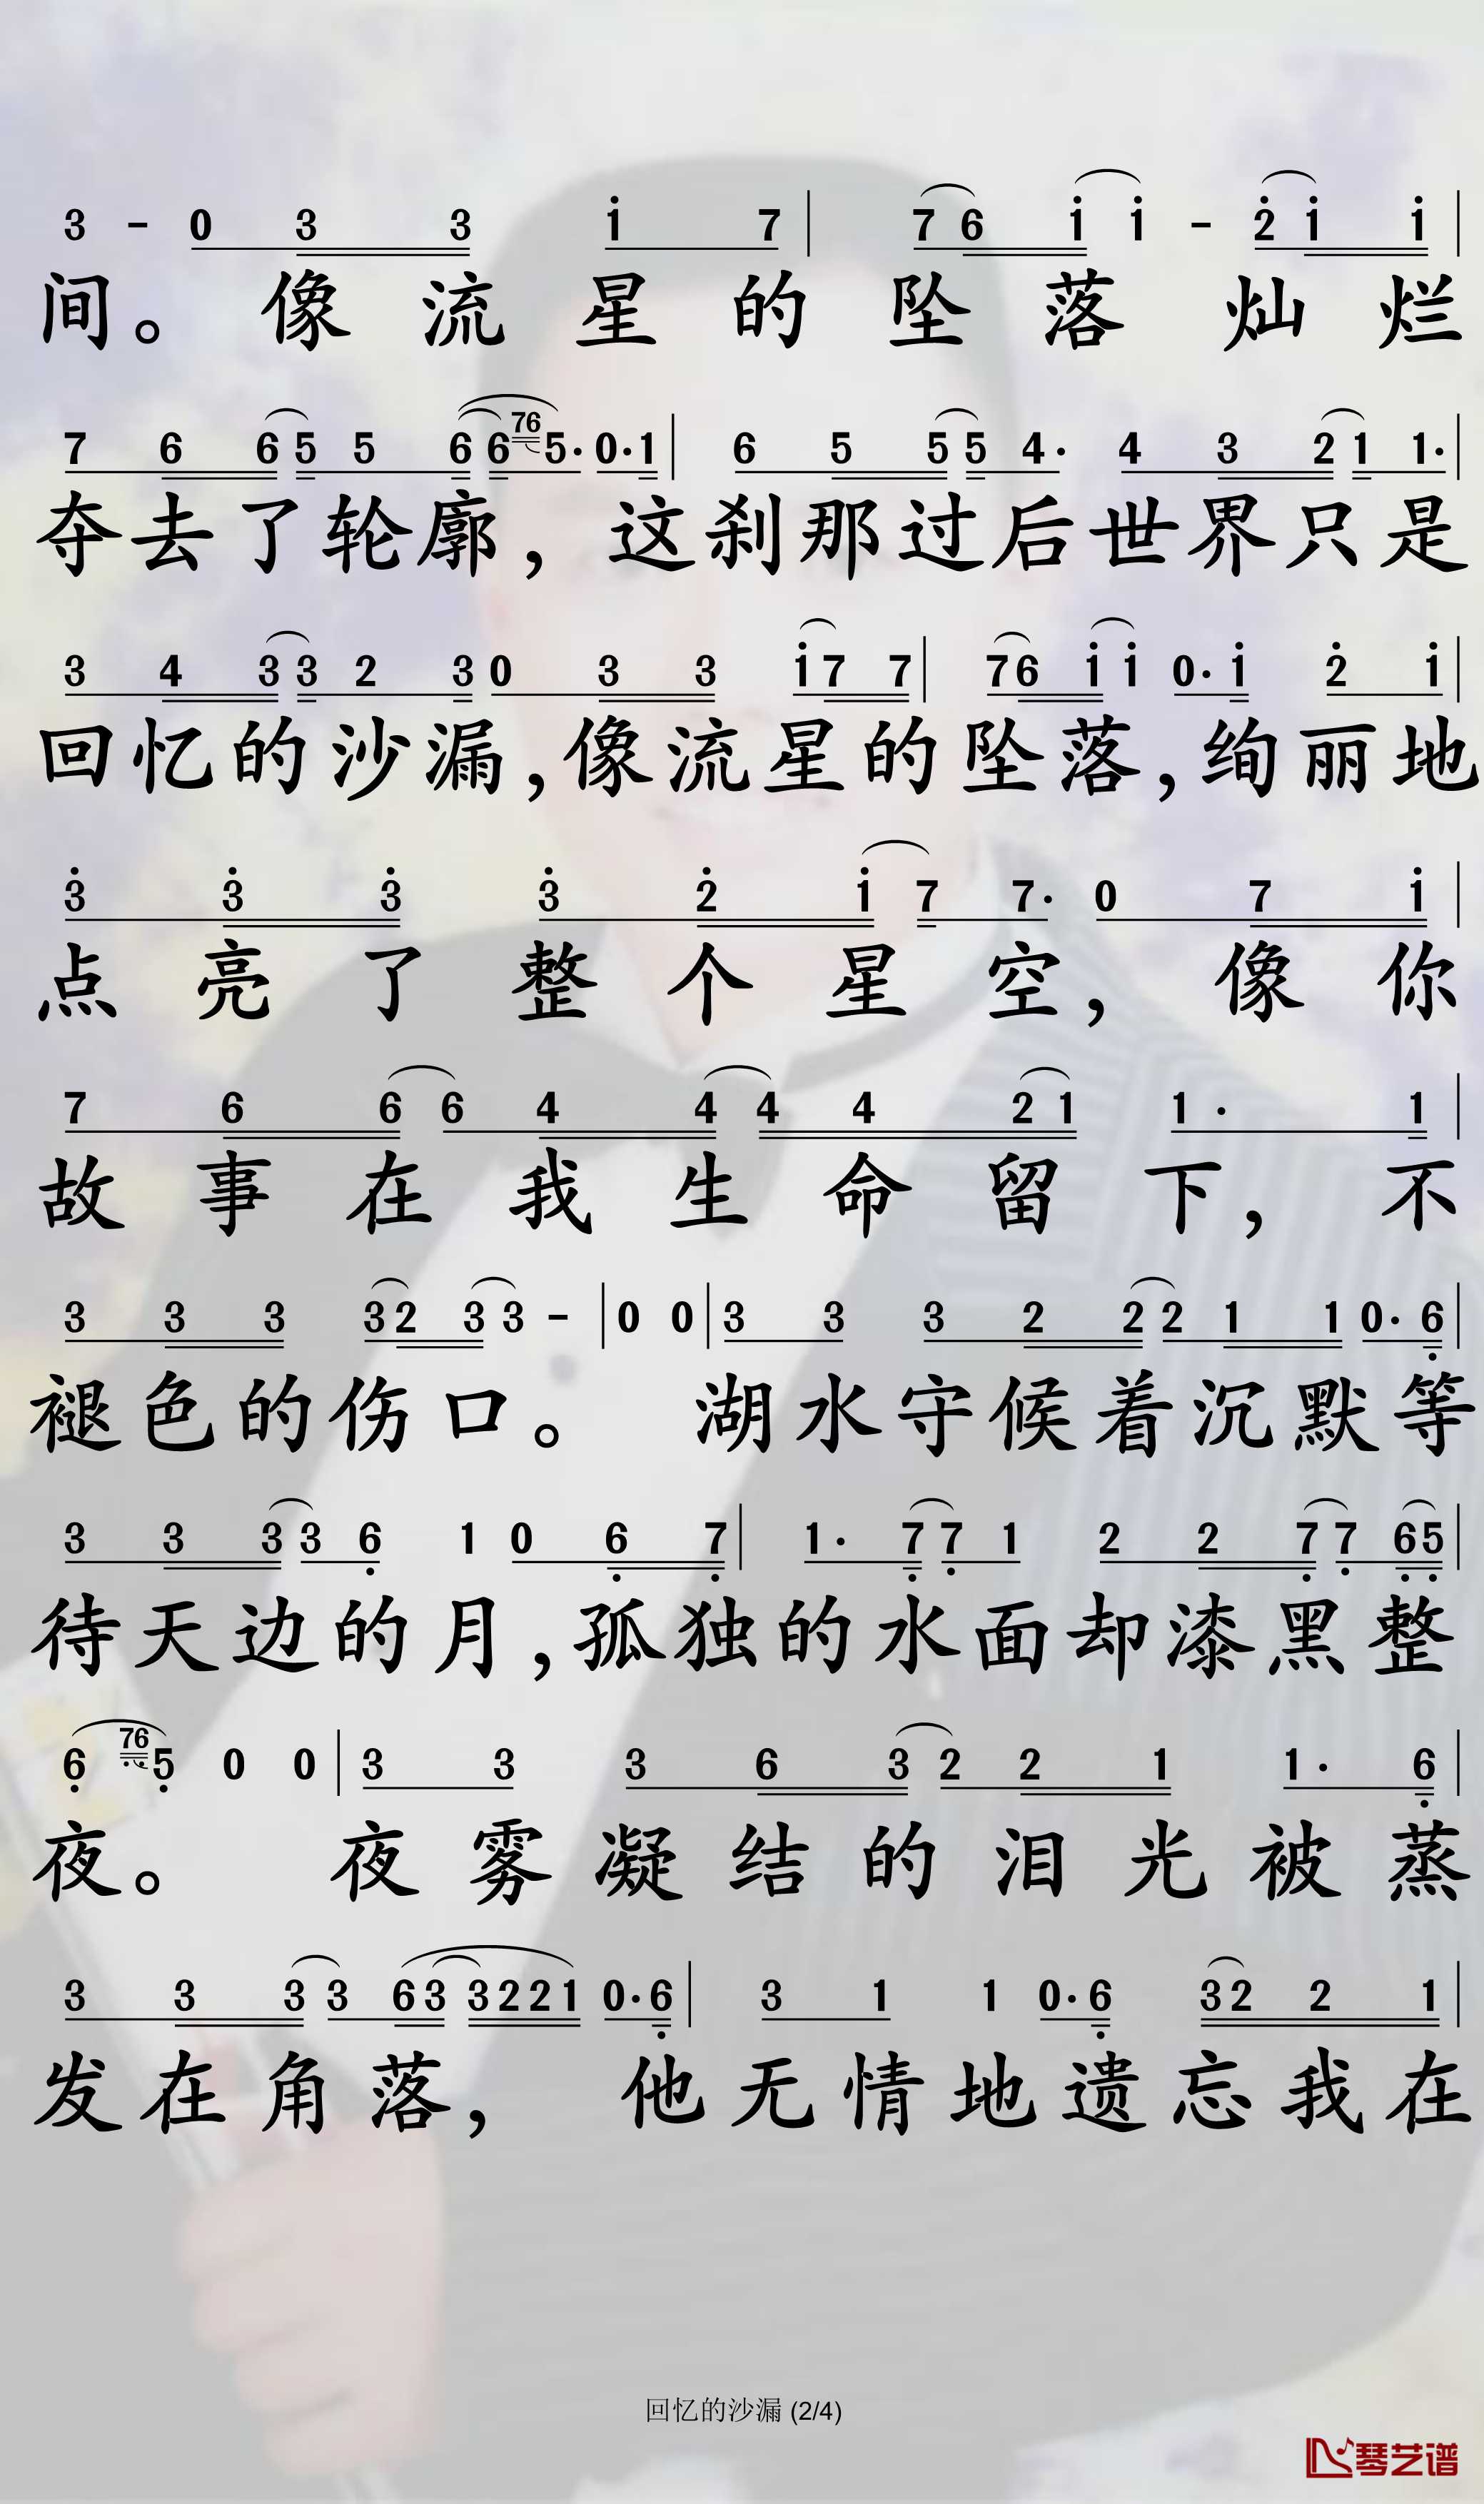 3 - 0 3 3 i 7 | 7 6 i i - 2 i i |
间。像流星的坠落灿烂
7 6 6 5 5 6 6 76 5· 0· 1 | 6 5 5 5 4· 4 3 2 1 1· |
夺去了轮廓，这刹那过后世界只是
3 4 3 3 2 3 0 3 3 i 7 7 | 7 6 i i 0· i 2 i |
回忆的沙漏，像流星的坠落，绚丽地
3 3 3 3 2 i 7 7· 0 7 i |
点亮了整个星空，像你
7 6 6 6 4 4 4 4 2 1 1· 1 |
故事在我生命留下，不
3 3 3 3 2 3 3 - | 0 0 | 3 3 3 2 2 2 1 1 0· 6 |
褪色的伤口。湖水守候着沉默等
3 3 3 3 6 1 0 6 7 | 1· 7 7 1 2 2 7 7 6 5 |
待天边的月，孤独的水面却漆黑整
6 76 5 0 0 | 3 3 3 6 3 2 2 1 1· 6 |
夜。夜雾凝结的泪光被蒸
3 3 3 3 6 3 3 2 2 1 0· 6 | 3 1 1 0· 6 3 2 2 1 |
发在角落，他无情地遗忘我在
回忆的沙漏 (2/4)
琴艺谱